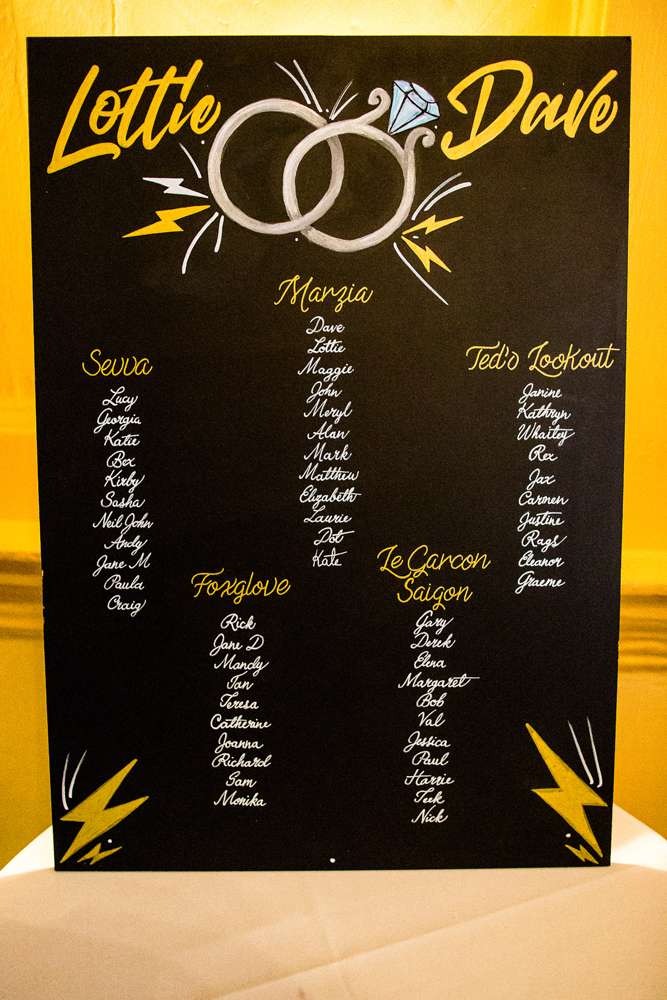 Lottie
Dave
Marzia
Dave
Lottie
Maggie
John
Meryl
Alan
Mark
Matthew
Elizabeth
Laurie
Dot
Kate
Sevva
Lucy
Georgia
Katie
Bex
Kirby
Sasha
Neil John
Andy
Jane M
Paula
Craig
Ted's Lookout
Janine
Kathryn
Whailey
Rex
Jax
Carmen
Justine
Rags
Eleanor
Graeme
Foxglove
Rick
Jane D
Mandy
Ian
Teresa
Catherine
Joanna
Richard
Sam
Monika
Le Garcon
Saigon
Gary
Derek
Elena
Margaret
Bob
Val
Jessica
Paul
Harrie
Teek
Nick